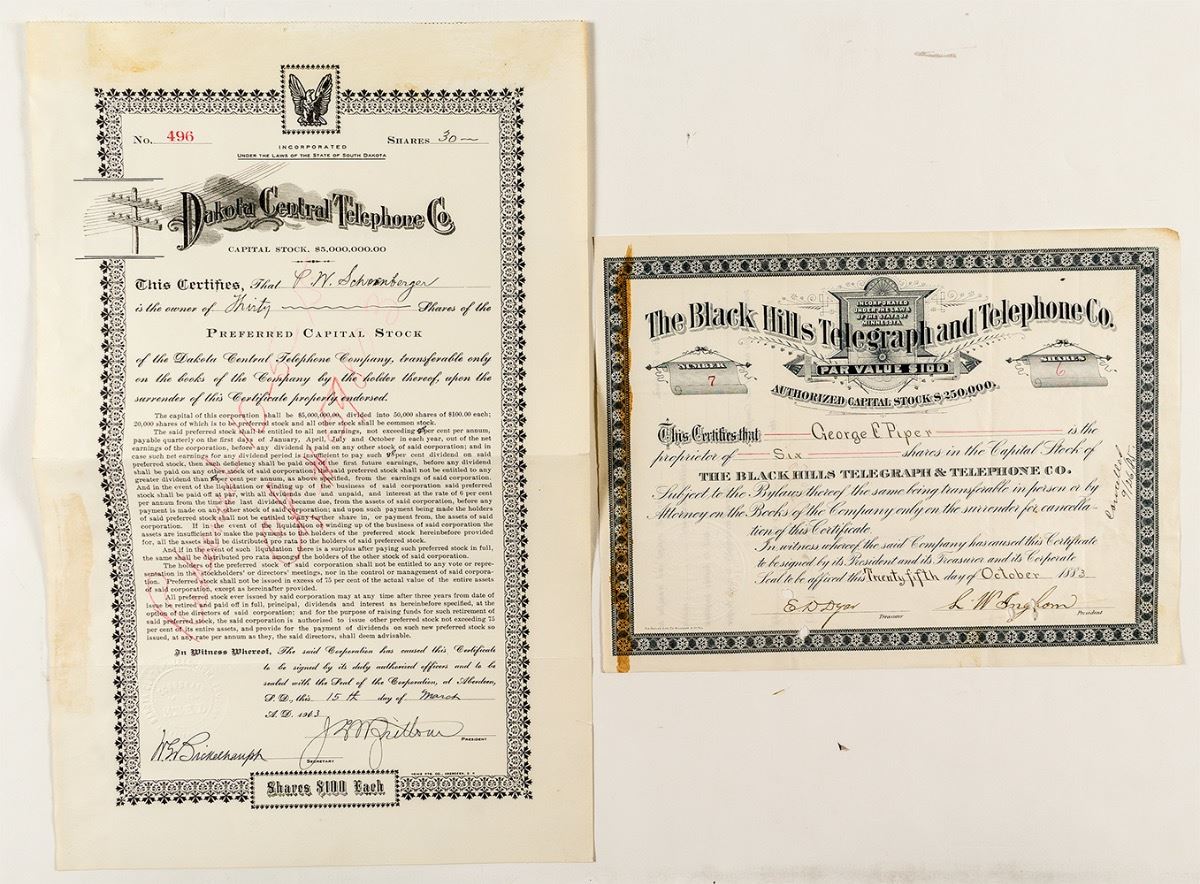 No. 496
SHARES 30
INCORPORATED
UNDER THE LAWS OF THE STATE OF SOUTH DAKOTA
Dakota Central Telephone Co.
CAPITAL STOCK, $5,000,000.00
This Certifies, That P. W. Schoenberger
is the owner of Thirty Shares of the
PREFERRED CAPITAL STOCK
of the Dakota Central Telephone Company, transferable only
on the books of the Company by the holder thereof, upon the
surrender of this Certificate properly endorsed.
The capital of this corporation shall be $5,000,000.00, divided into 50,000 shares of $100.00 each;
20,000 shares of which is to be preferred stock and all other stock shall be common stock.
The said preferred stock shall be entitled to all net earnings, not exceeding per cent per annum,
payable quarterly on the first days of January, April, July and October in each year, out of the net
earnings of the corporation, before any dividend is paid on any other stock of said corporation; and in
case such net earnings for any dividend period is insufficient to pay such per cent dividend on said
preferred stock, then such deficiency shall be paid out of the first future earnings, before any dividend
shall be paid on any other stock of said corporation; but said preferred stock shall not be entitled to any
greater dividend than per cent per annum, as above specified, from the earnings of said corporation.
And in the event of the liquidation or winding up of the business of said corporation said preferred
stock shall be paid off at par, with all dividends due and unpaid, and interest at the rate of 6 per cent
per annum from the time the last dividend became due, from the assets of said corporation, before any
payment is made on any other stock of said corporation; and upon such payment being made the holders
of said preferred stock shall not be entitled to any further share in, or payment from, the assets of said
corporation. If in the event of the liquidation or winding up of the business of said corporation the
assets are insufficient to make the payments to the holders of the preferred stock hereinbefore provided
for, all the assets shall be distributed pro rata to the holders of said preferred stock.
And if in the event of such liquidation there is a surplus after paying such preferred stock in full,
the same shall be distributed pro rata amongst the holders of the other stock of said corporation.
The holders of the preferred stock of said corporation shall not be entitled to any vote or repre-
sentation in the stockholders' or directors' meetings, nor in the control or management of said corpora-
tion. Preferred stock shall not be issued in excess of 75 per cent of the actual value of the entire assets
of said corporation, except as hereinafter provided.
All preferred stock ever issued by said corporation may at any time after three years from date of
issue be retired and paid off in full, principal, dividends and interest as hereinbefore specified, at the
option of the directors of said corporation; and for the purpose of raising funds for such retirement of
said preferred stock, the said corporation is authorized to issue other preferred stock not exceeding 75
per cent of its entire assets, and provide for the payment of dividends on such new preferred stock so
issued, at any rate per annum as they, the said directors, shall deem advisable.
In Witness Whereof, The said Corporation has caused this Certificate
to be signed by its duly authorized officers and to be
sealed with the Seal of the Corporation, at Aberdeen,
S. D., this 15th day of March
A. D. 1913
PRESIDENT
SECRETARY
Shares $100 Each
INCORPORATED
UNDER THE LAWS
OF THE STATE OF
MINNESOTA.
The Black Hills Telegraph and Telephone Co.
NUMBER
7
SHARES
6
PAR VALUE $100
AUTHORIZED CAPITAL STOCK $250,000.
This Certifies that George E Piper is the
proprietor of Six shares in the Capital Stock of
THE BLACK HILLS TELEGRAPH & TELEPHONE CO.
Subject to the Bylaws thereof the same being transferable in person or by
Attorney on the Books of the Company only on the surrender for cancella-
tion of this Certificate.
In witness whereof the said Company has caused this Certificate
to be signed by its President and its Treasurer and its Corporate
Seal to be affixed this Twenty fifth day of October 1883
E D Dyar
Treasurer
L W Ingham
President
Cancelled